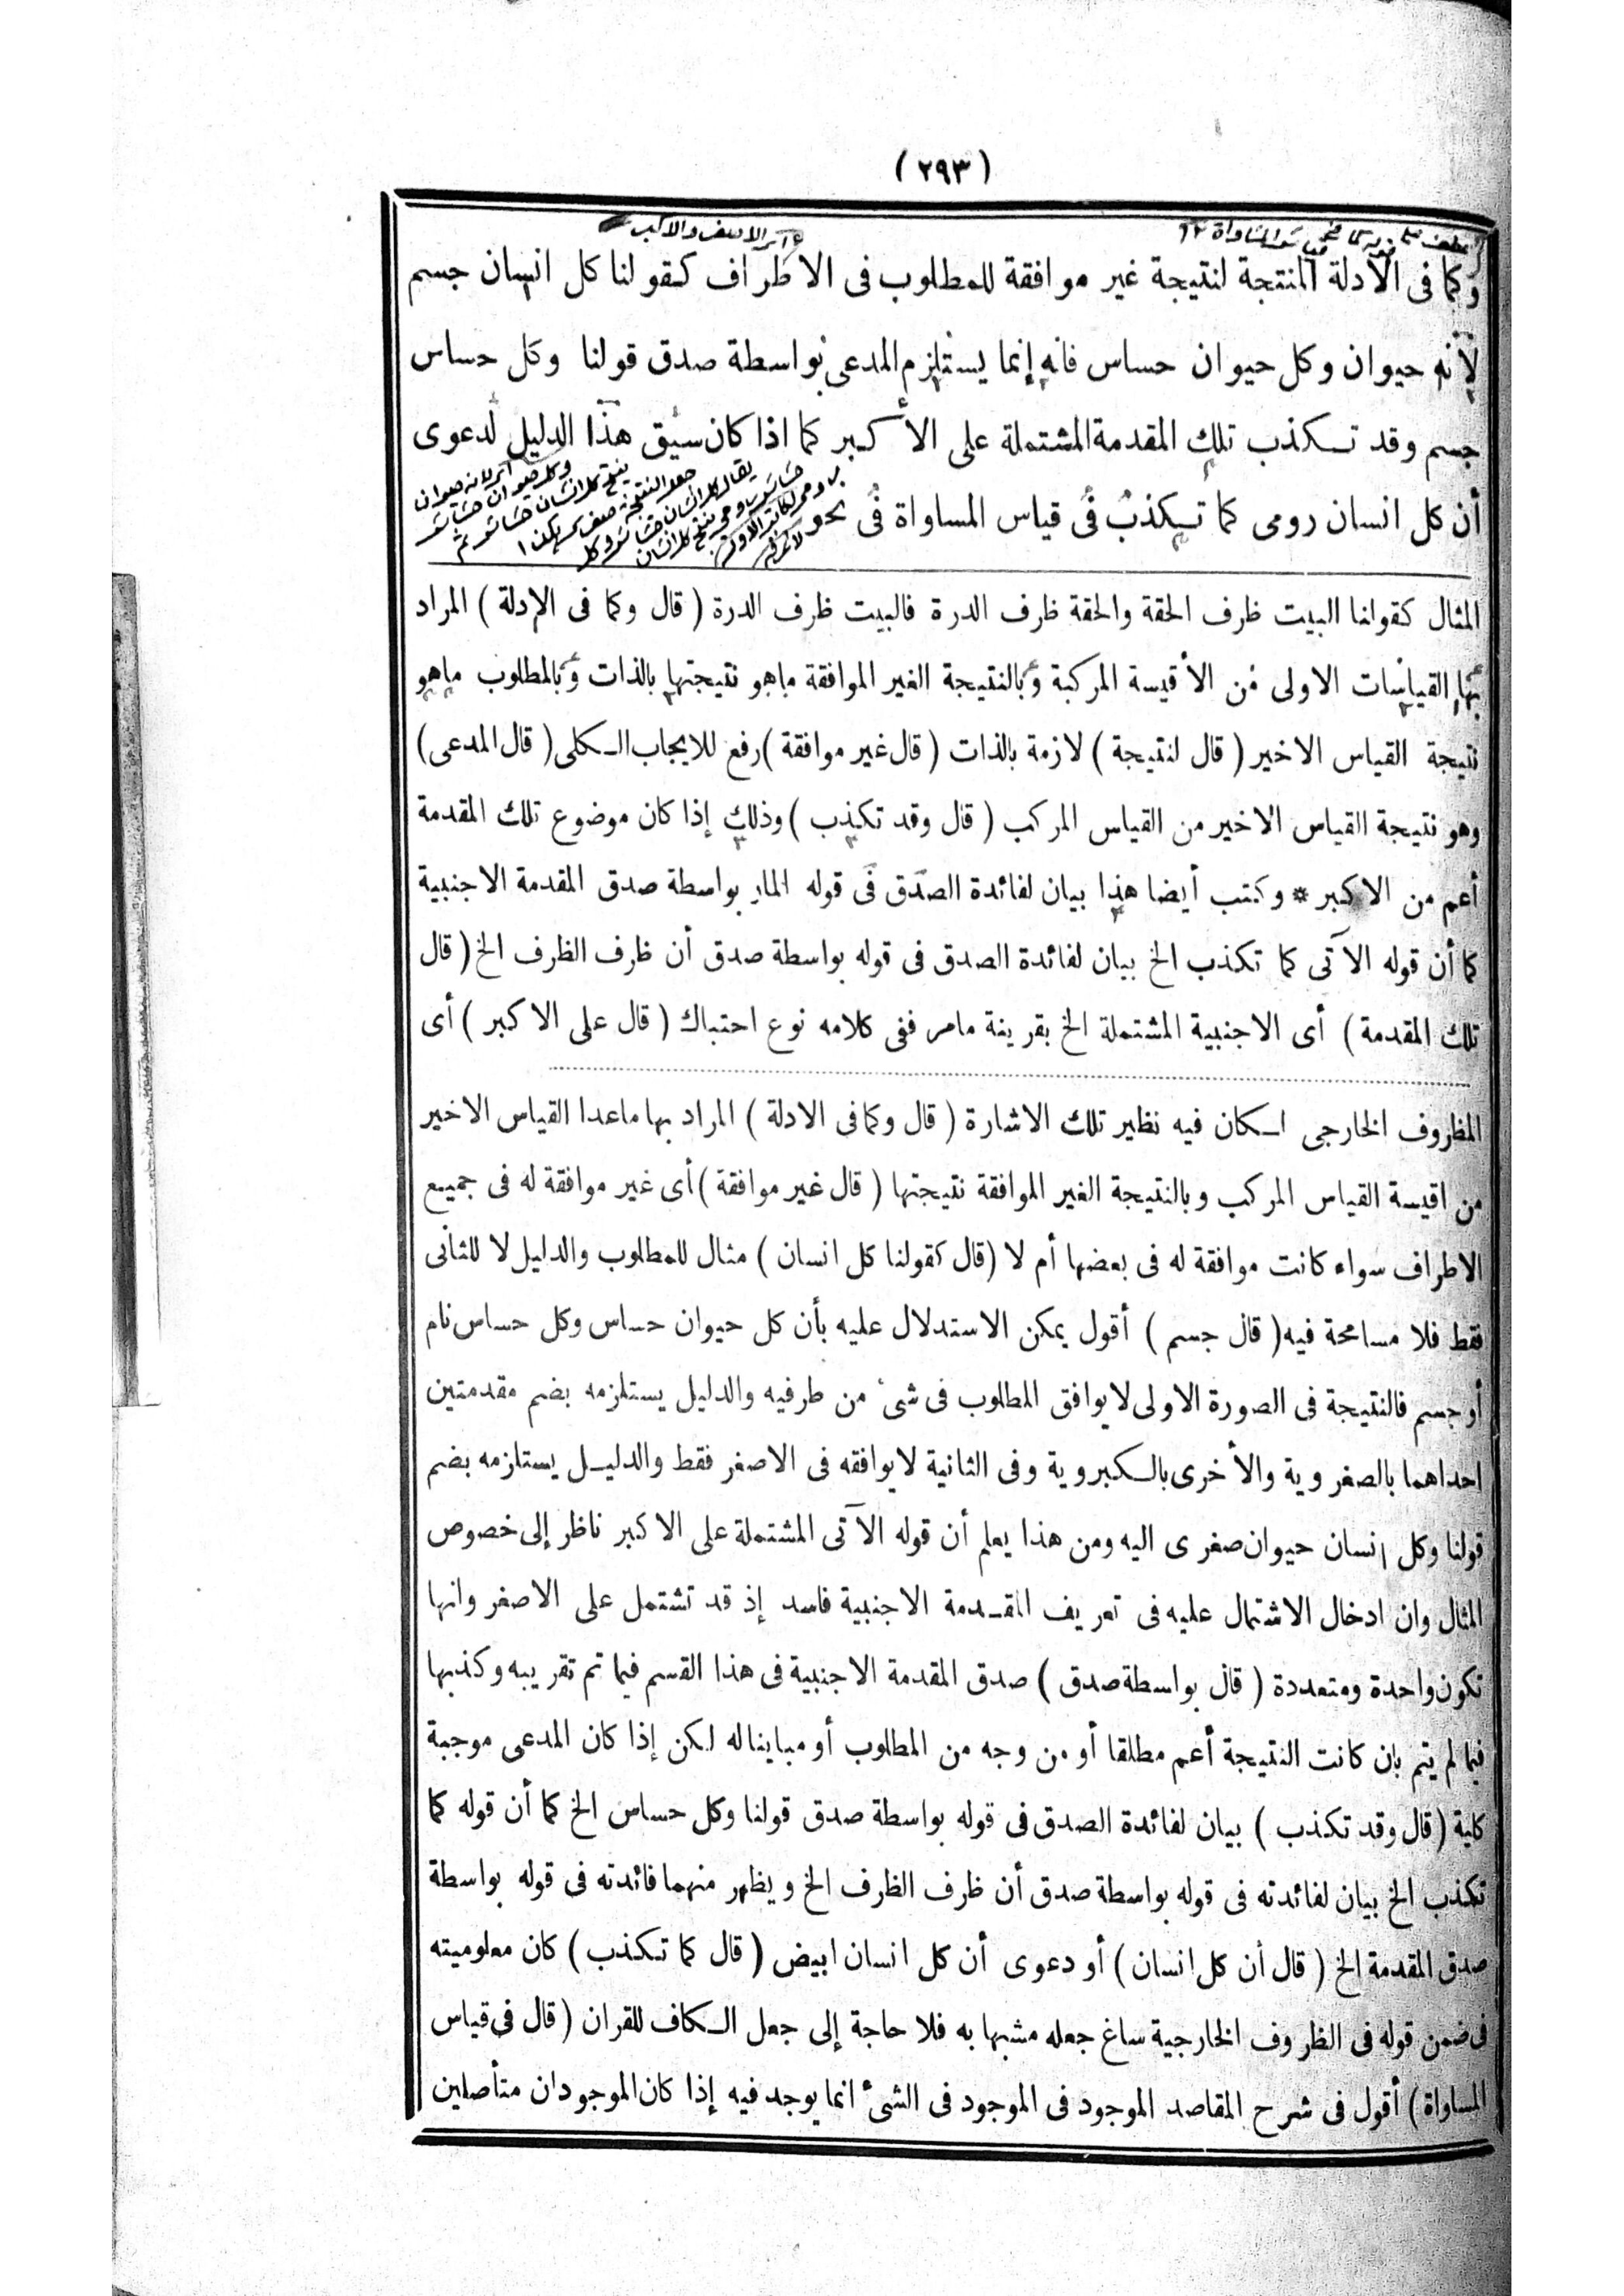 ( ٢٩٣ )
وكما فى الأدلة المنتجة لنتيجة غير موافقة للمطلوب فى الاطراف كقولنا كل انسان جسم
لأنه حيوان وكل حيوان حساس فانه إنما يستلزم المدعى بواسطة صدق قولنا وكل حساس
جسم وقد تكذب تلك المقدمة المشتملة على الأكبر كما اذا كان سيق هذا الدليل لدعوى
أن كل انسان رومى كما تكذب فى قياس المساواة فى نحو
المثال كقولنا البيت ظرف الحقة والحقة ظرف الدرة فالبيت ظرف الدرة ( قال وكما فى الادلة ) المراد
بها القياسات الاولى من الأقيسة المركبة وبالنتيجة الغير الموافقة ماهو نتيجتها بالذات وبالمطلوب ماهو
نتيجة القياس الاخير ( قال لنتيجة ) لازمة بالذات ( قال غير موافقة ) رفع للايجاب الكلى ( قال المدعى )
وهو نتيجة القياس الاخير من القياس المركب ( قال وقد تكذب ) وذلك إذا كان موضوع تلك المقدمة
أعم من الاكبر * وكتب أيضا هذا بيان لفائدة الصدق فى قوله المار بواسطة صدق المقدمة الاجنبية
كما أن قوله الآتى كما تكذب الخ بيان لفائدة الصدق فى قوله بواسطة صدق أن ظرف الظرف الخ ( قال
تلك المقدمة ) أى الاجنبية المشتملة الخ بقرينة مامر ففى كلامه نوع احتباك ( قال على الاكبر ) أى
المظروف الخارجى لكان فيه نظير تلك الاشارة ( قال وكما فى الادلة ) المراد بها ماعدا القياس الاخير
من اقيسة القياس المركب وبالنتيجة الغير الموافقة نتيجتها ( قال غير موافقة ) أى غير موافقة له فى جميع
الاطراف سواء كانت موافقة له فى بعضها أم لا ( قال كقولنا كل انسان ) مثال للمطلوب والدليل لا للثانى
فقط فلا مسامحة فيه ( قال جسم ) أقول يمكن الاستدلال عليه بأن كل حيوان حساس وكل حساس نام
أو جسم فالنتيجة فى الصورة الاولى لا يوافق المطلوب فى شئ من طرفيه والدليل يستلزمه بضم مقدمتين
احداهما بالصغروية والأخرى بالكبروية وفى الثانية لا يوافقه فى الاصغر فقط والدليل يستلزمه بضم
قولنا وكل انسان حيوان صغرى اليه ومن هذا يعلم أن قوله الآتى المشتملة على الاكبر ناظر إلى خصوص
المثال وان ادخال الاشتمال عليه فى تعريف المقدمة الاجنبية فاسد إذ قد تشتمل على الاصغر وانها
تكون واحدة ومتعددة ( قال بواسطة صدق ) صدق المقدمة الاجنبية فى هذا القسم فيما تم تقريبه وكذبها
فيما لم يتم بان كانت النتيجة أعم مطلقا أو من وجه من المطلوب أو مباينا له لكن إذا كان المدعى موجبة
كلية ( قال وقد تكذب ) بيان لفائدة الصدق فى قوله بواسطة صدق قولنا وكل حساس الخ كما أن قوله كما
تكذب الخ بيان لفائدته فى قوله بواسطة صدق أن ظرف الظرف الخ ويظهر منهما فائدته فى قوله بواسطة
صدق المقدمة الخ ( قال أن كل انسان ) أو دعوى أن كل انسان ابيض ( قال كما تكذب ) كان معلوميته
فى ضمن قوله فى الظروف الخارجية ساغ جعله مشبها به فلا حاجة إلى جعل الكاف للقران ( قال فى قياس
المساواة ) أقول فى شرح المقاصد الموجود فى الموجود فى الشئ انما يوجد فيه إذا كان الموجودان متأصلين